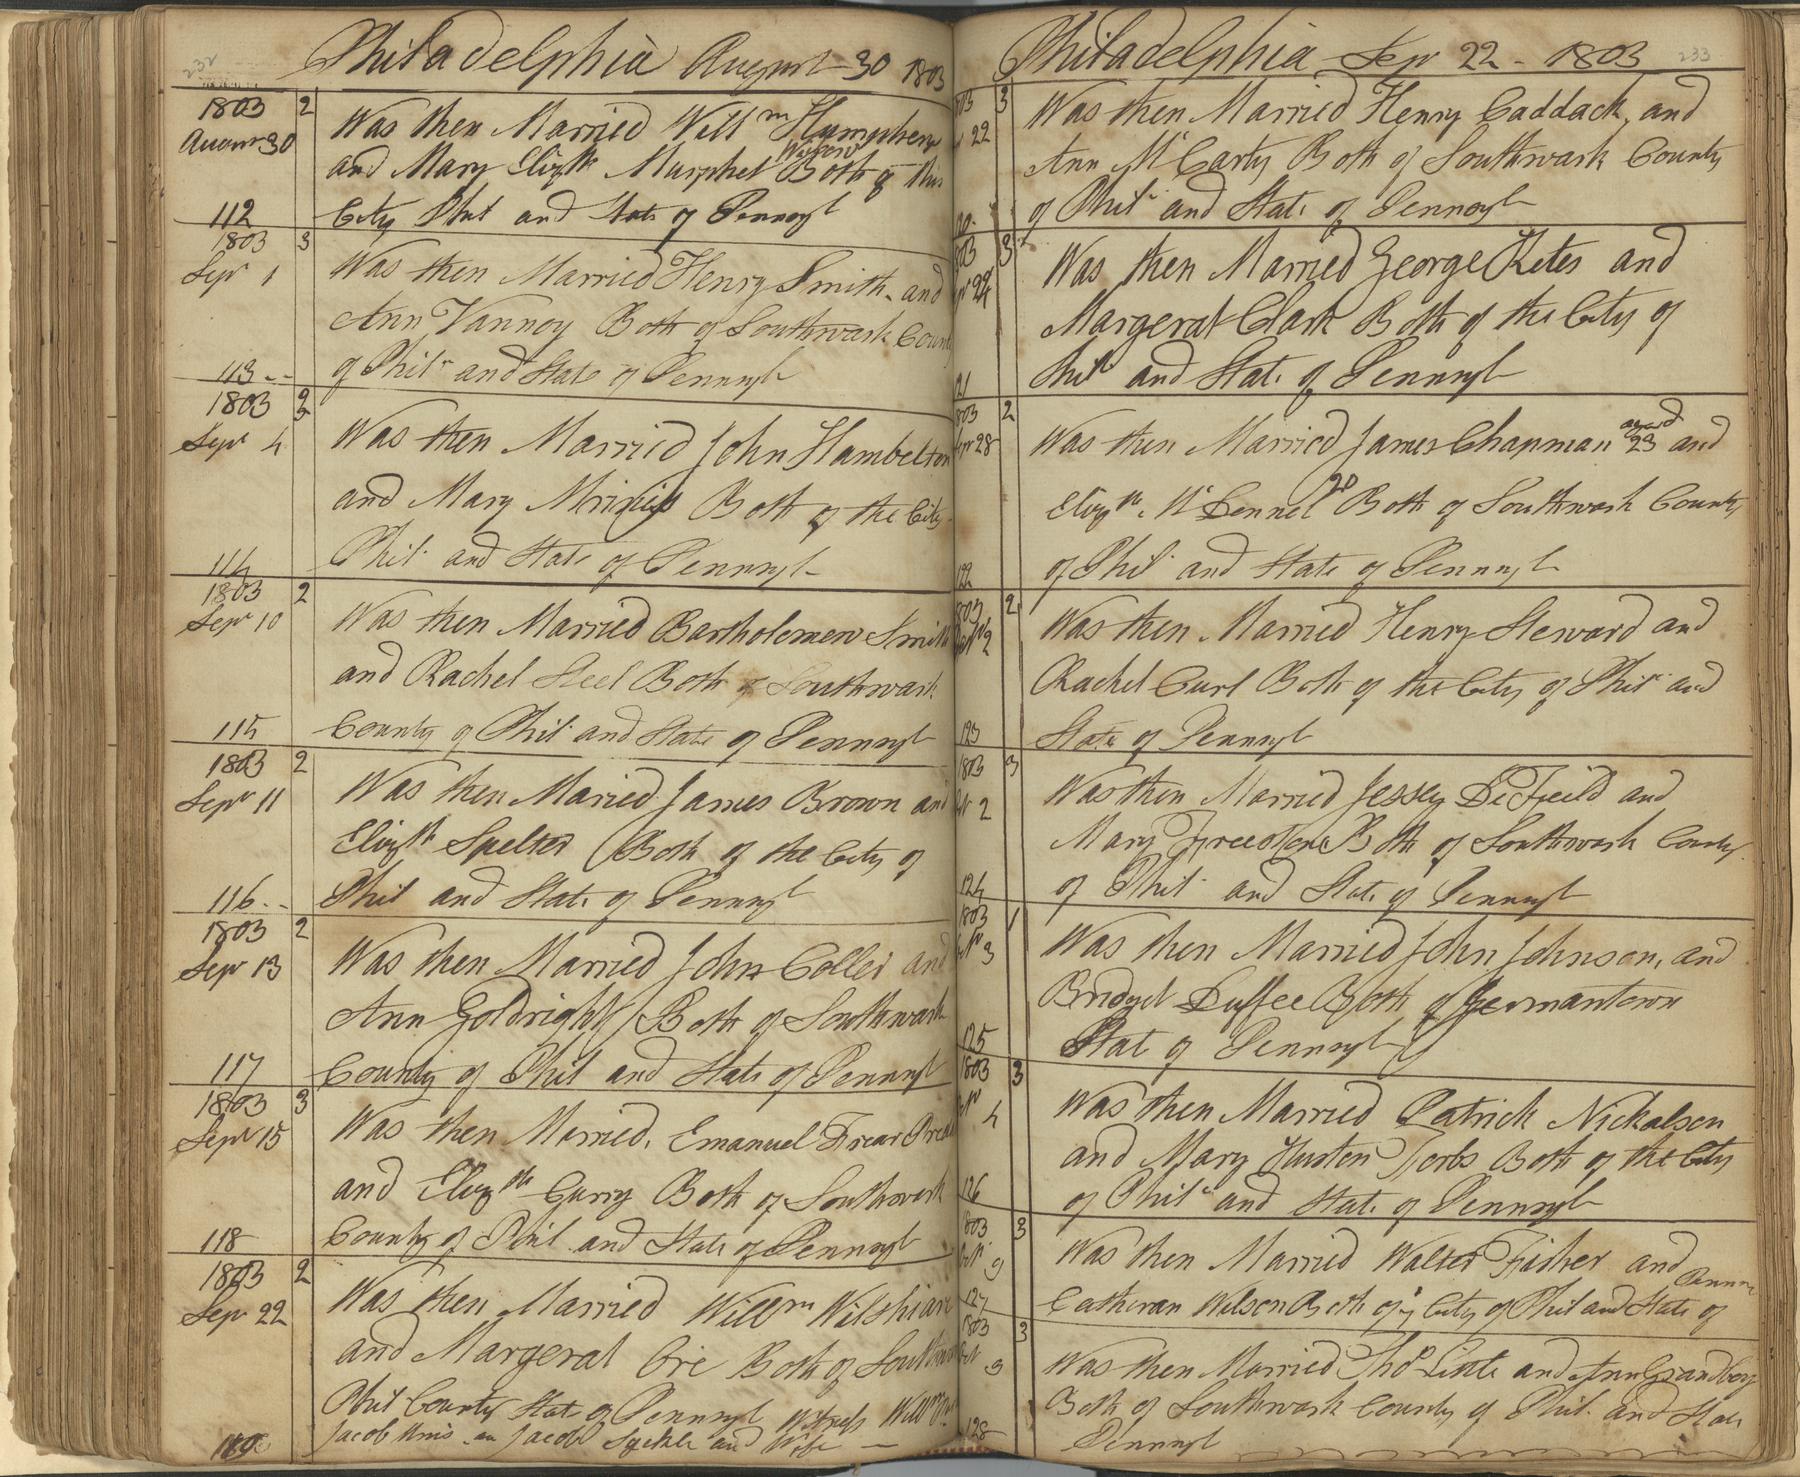 232
Philadelphia August 30 1803
1803 2
August 30
Was then Married Will^m Humphreys
Widow
and Mary Eliz^th Murphet Both of this
City Phil and State of Pennsyl
112
1803 3
Sep^r 1
Was then Married Henry Smith and
Ann Vannoy Both of Southwark County
of Phil^a and State of Pennsyl
113
1803
Sep^r 4
Was then Married John Hambelton
and Mary Both of the City
Phil and State of Pennsyl
114
1803 2
Sep^r 10
Was then Married Bartholemew Smith
and Rachel Steel Both of Southwark
County of Phil and State of Pennsyl
115
1803 2
Sep^r 11
Was then Maried James Brown and
Eliz^th Spelter Both of the City of
Phil and State of Pennsyl
116
1803 2
Sep^r 13
Was then Married John Coller and
Ann Goldright Both of Southwark
County of Phil and State of Pennsyl
117
1803 3
Sep^r 15
Was then Married, Emanuel
and Eliz^th Gurry Both of Southwark
County of Phil and State of Pennsyl
118
1803 2
Sep 22
Was then Married Will^m Wilshiar
and Margerat Ore Both of
Phil County State of Pennsyl Witness Will^m
Jacob and Wife
233
Philadelphia Sep^r 22 - 1803
803 3
22
Was then Married Henry Caddack, and
Ann M^cCarty Both of Southwark County
of Phil^a and State of Pennsyl
803 3
24
Was then Married George Ketes and
Margerat Clark Both of the City of
Phil^a and State of Pennsyl
21
803 2
Sep^r 28
aged
Was then Married James Chapman 23 and
20
Eliz^th M^cDennel Both of Southwark County
of Phil and State of Pennsyl
122
1803 2
2
Was then Married Henry Steward and
Rachel Curl Both of the City of Phil^a and
State of Pennsyl
123
1803 3
2
Was then Married Jessey DeFreild and
Mary Freestone Both of Southwark County
of Phil and State of Pennsyl
124
1803 1
3
Was then Married John Johnson, and
Bridget Duffee Both of Germantown
Stat of Pennsyl
125
1803 3
4
Was then Married Patrick Nickalson
and Mary Huston Both of the City
of Phil^a and State of Pennsyl
126
1803 3
9
Was then Married Walter Fisher and
Catheran Wilson Both of y City of Phil and State of Pennsy
127
1803 3
9
Was then Married Tho^s Little and Ann Grandboy
Both of Southwark County of Phil and State
Pennsyl
128